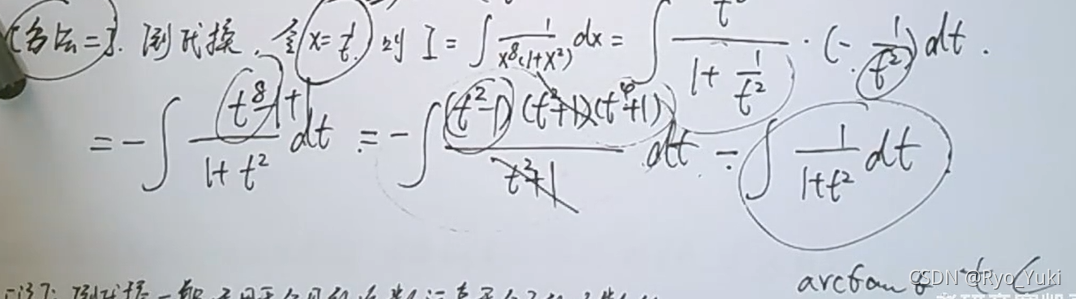 [方法二]. 倒代换, 令 x=1/t, 则 I = ∫ 1/(x⁸(1+x²)) dx = ∫ t⁸/(1+1/t²) · (-1/t²) dt.
= -∫ (t⁸-1+1)/(1+t²) dt = -∫ (t²-1)(t²+1)(t⁴+1)/(t²+1) dt - ∫ 1/(1+t²) dt
arctan t + C
CSDN @Ryo_Yuki